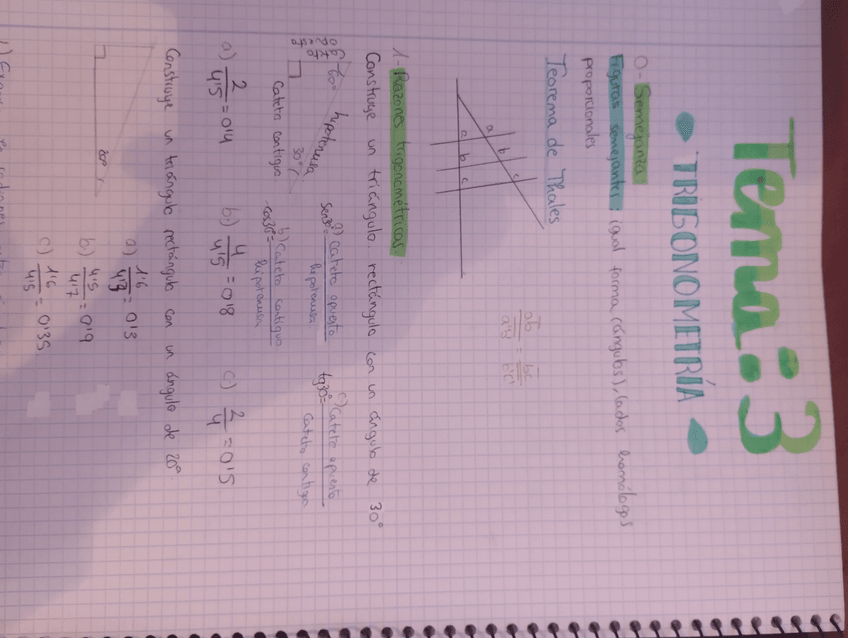 Tema: 3
TRIGONOMETRÍA
0- Semejanza
Figuras semejantes: igual forma (ángulos), lados homólogos
proporcionales
Teorema de Thales
a
b
c
a
b
c
ab
a'b'
=
bc
b'c'
1- Razones trigonométricas:
Construye un triángulo rectángulo con un ángulo de 30°
60°
hipotenusa
30°
Cateto contiguo
a) Cateto opuesto
sen30°=
hipotenusa
b) Cateto contiguo
cos30°=
hipotenusa
c) Cateto opuesto
tg30°=
Cateto contiguo
a) 2/4'5 = 0'4
b) 4/4'5 = 0'8
c) 2/4 = 0'5
Construye un triángulo rectángulo con un ángulo de 20°
20°
a) 1'6/4'7 = 0'3
b) 4'5/4'7 = 0'9
c) 1'6/4'5 = 0'35